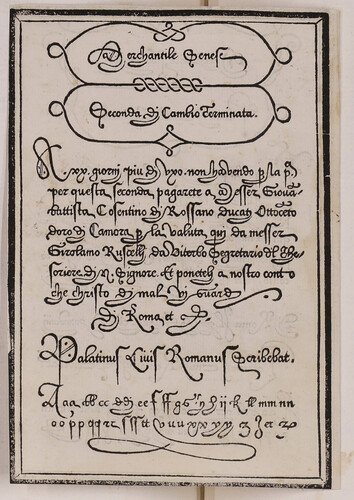 Merchantile Senese
Seconda di Cambio Terminata.
A xx. giorni piu di vxo. non havendo p la p.ª
per questa seconda pagarete a Messer Giova
battista Cosentino di Rossano ducati Ottoceto
doro di Camera p la valuta qui da messer
Girolamo Ruscelli da Viterbo Segretario del The
soriere di N. Signore. Et poneteli a nostro conto
che christo di mal Vi guardi
di Roma et c̃.
Palatinus Civis Romanus Scribebat.
A a a b b c c d d e e f ff g g h ij k ll m m n n
o o p p q q r r s ss tt v u u x x y y z z et